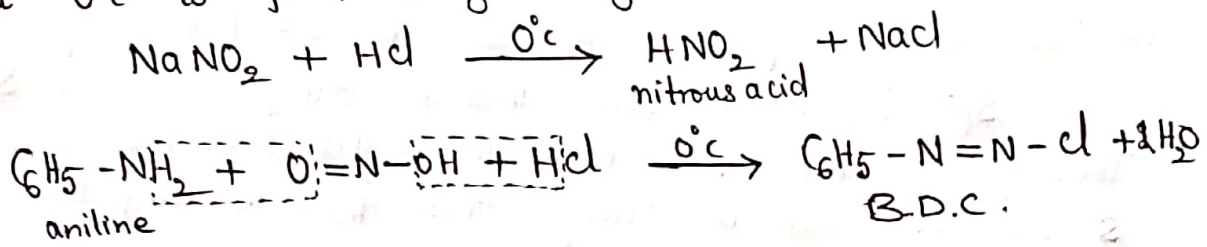 NaNO₂ + HCl —0°c→ HNO₂ + NaCl
nitrous acid
C₆H₅ -NH₂ + O=N-OH + HCl —0°c→ C₆H₅ - N = N - Cl + 2H₂O
aniline B.D.C.